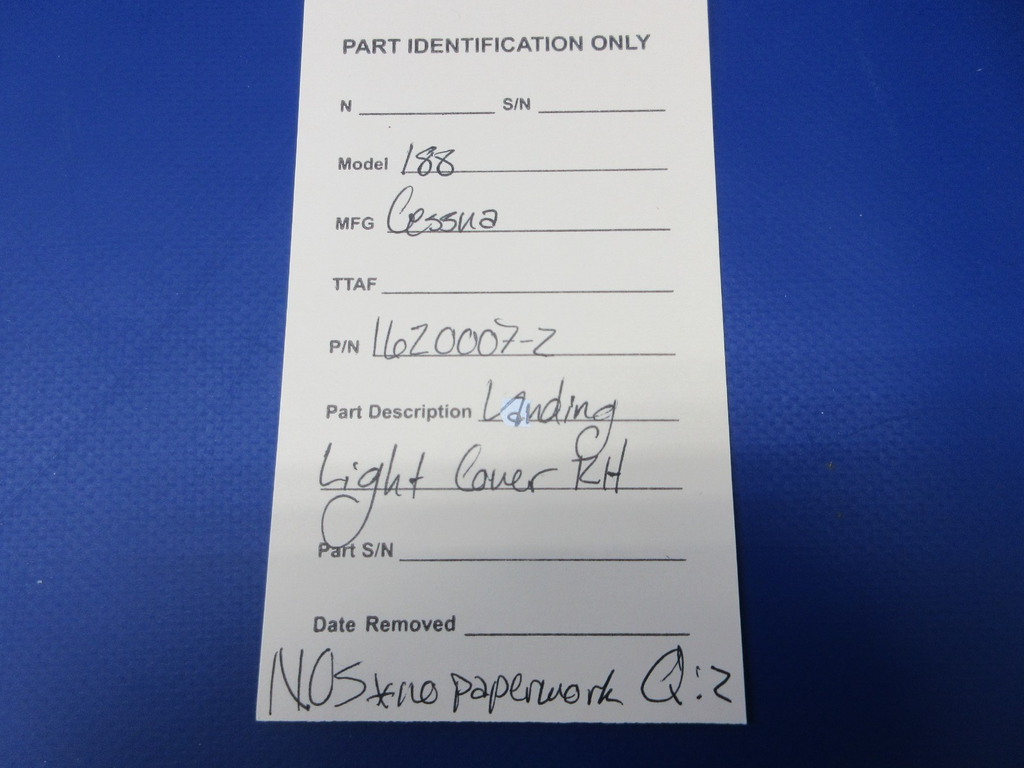 PART IDENTIFICATION ONLY
N S/N
Model 188
MFG Cessna
TTAF
P/N 1620007-2
Part Description Landing
Light Cover RH
Part S/N
Date Removed
N.O.S *no paperwork Q:2